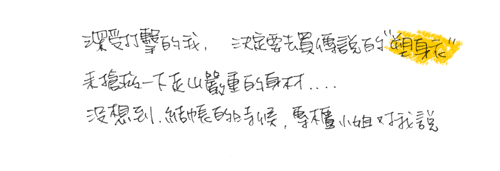 深受打擊的我,決定要去買傳說的"塑身衣"
來搶救一下走山嚴重的身材....
沒想到,結帳的時候,專櫃小姐對我說